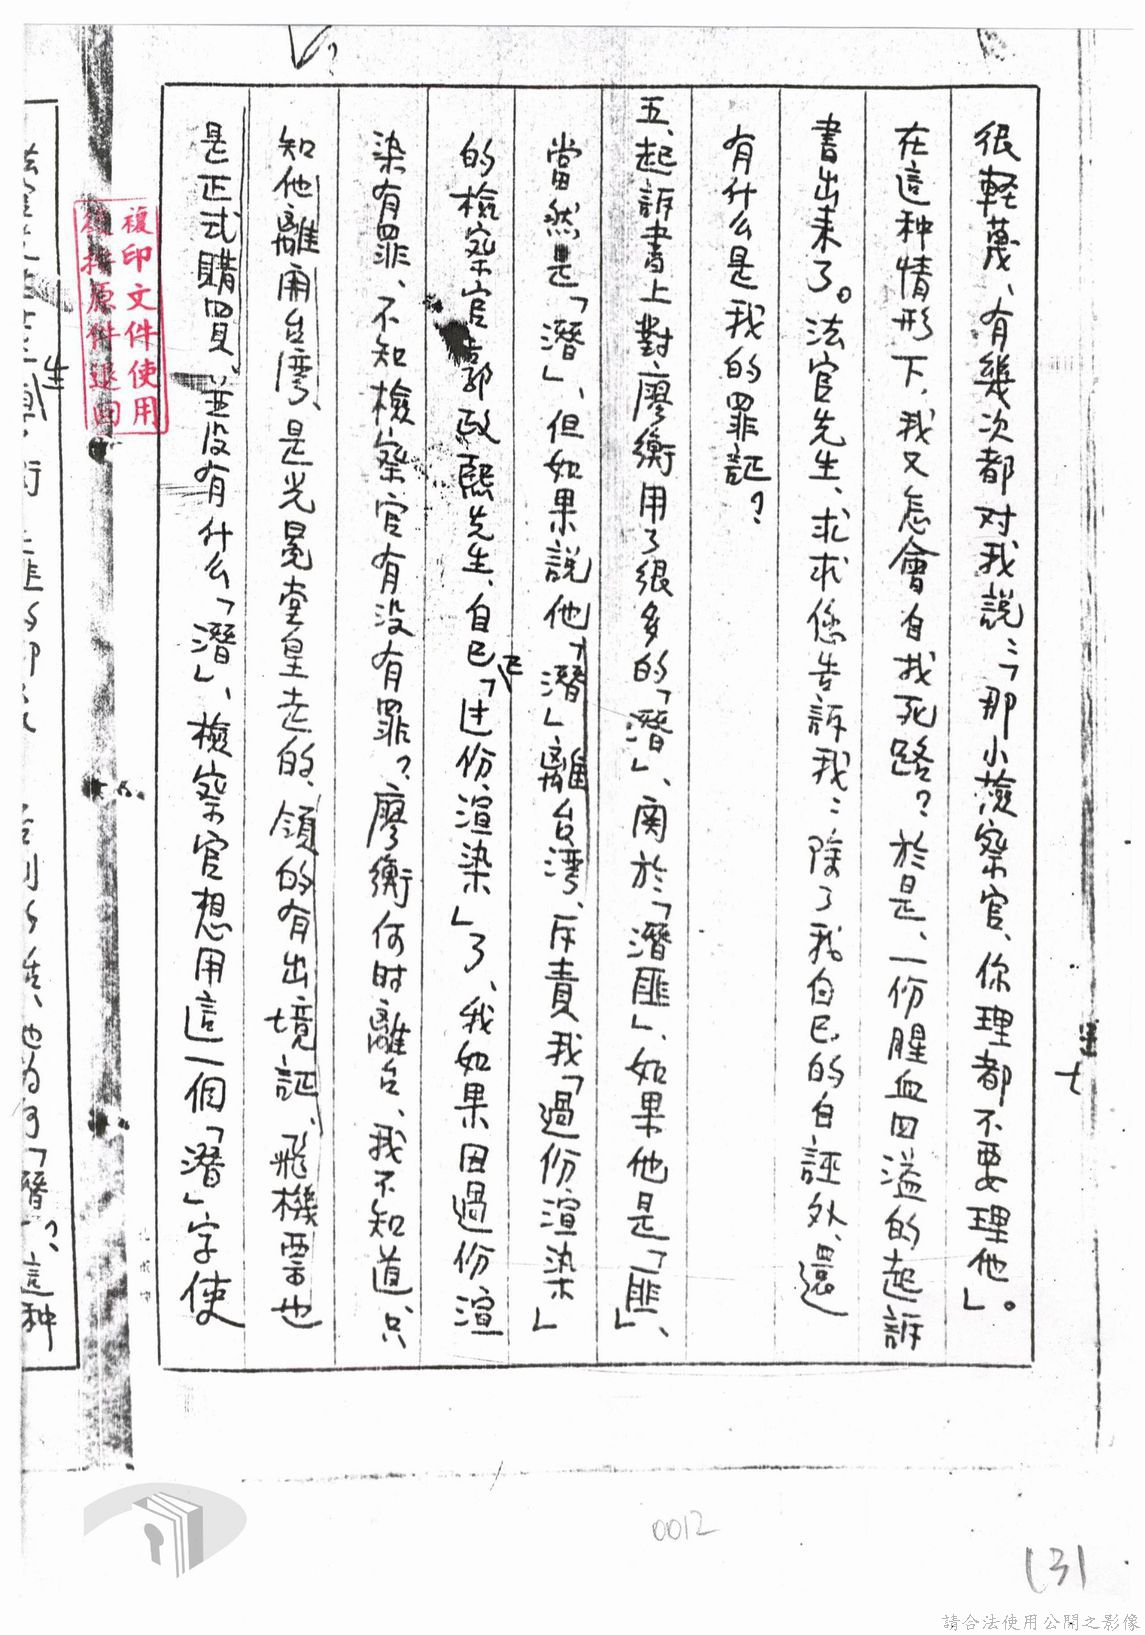 很輕蔑、有幾次都对我説：「那小檢察官、你理都不要理他」。
在這种情形下、我又怎會自找死路？於是、一份腥血四溢的起訴
書出来了。法官先生、求求您告訴我：除了我自己的自誣外、還
有什么是我的罪証？
五、起訴書上對廖衡用了很多的「潛」、関於「潛匪」、如果他是「匪」、
當然是「潛」、但如果説他「潛」離台湾、斥責我「過份渲染」
的檢察官郭政熙先生、自己已「过份渲染」了、我如果因過份渲
染有罪、不知檢察官有没有罪？廖衡何时離台、我不知道、只
知他離開台湾、是光冕堂皇走的、領的有出境証、飛機票也
是正式購買、並没有什么「潛」、檢察官想用這一個「潛」字使
七
生
「潛」？、這种
複印文件使用
後將原件退回
0012
(3)
請合法使用公開之影像